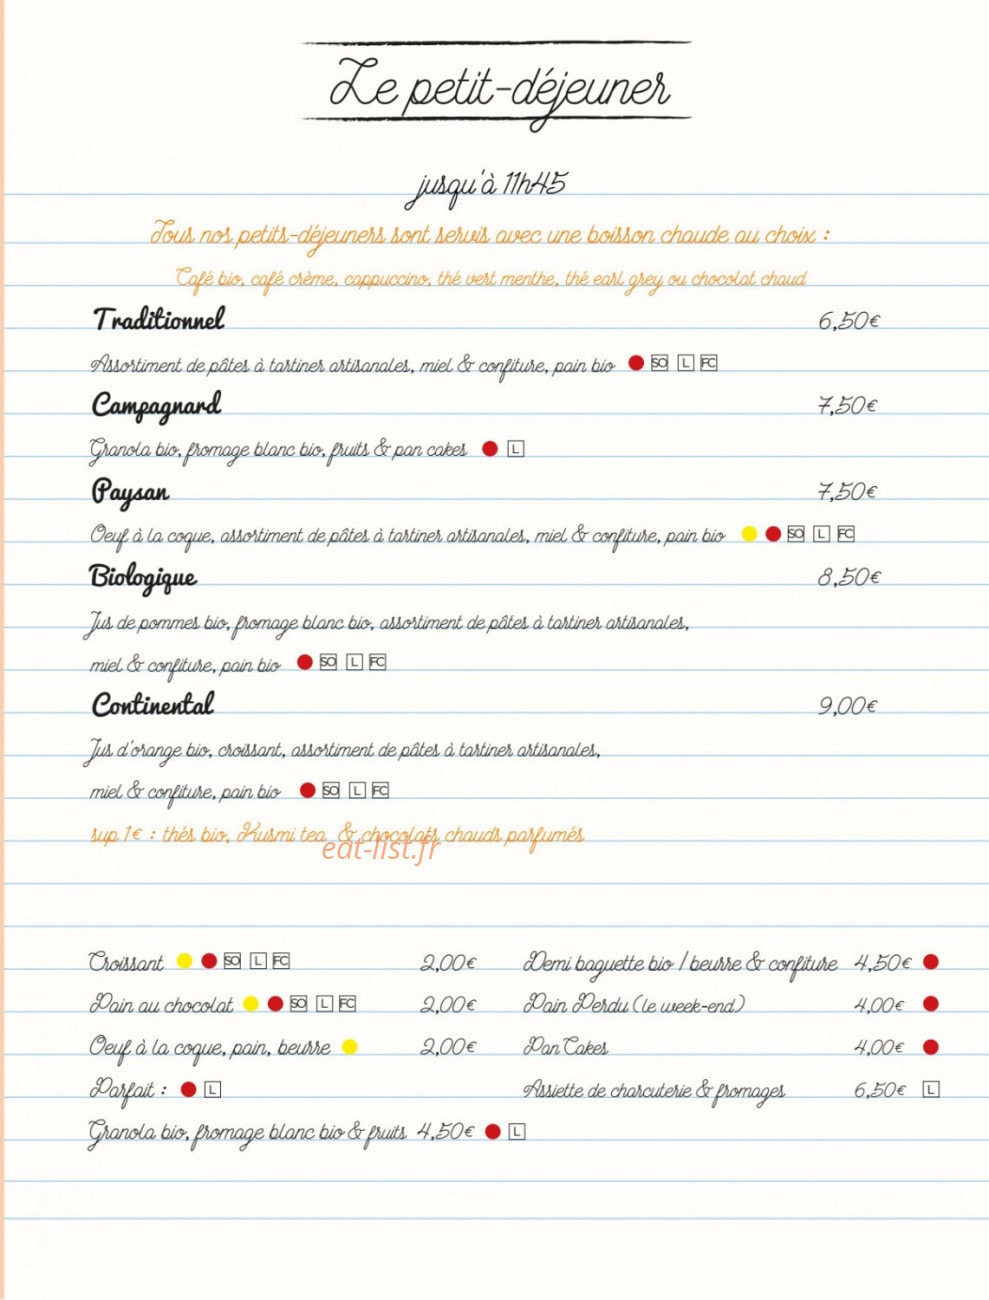 Le petit-déjeuner
jusqu'à 11h45
Tous nos petits-déjeuners sont servis avec une boisson chaude au choix :
Café bio, café crème, cappuccino, thé vert menthe, thé earl grey ou chocolat chaud
Traditionnel 6,50€
Assortiment de pâtes à tartiner artisanales, miel & confiture, pain bio SO L FC
Campagnard 7,50€
Granola bio, fromage blanc bio, fruits & pan cakes L
Paysan 7,50€
Oeuf à la coque, assortiment de pâtes à tartiner artisanales, miel & confiture, pain bio SO L FC
Biologique 8,50€
Jus de pommes bio, fromage blanc bio, assortiment de pâtes à tartiner artisanales,
miel & confiture, pain bio SO L FC
Continental 9,00€
Jus d'orange bio, croissant, assortiment de pâtes à tartiner artisanales,
miel & confiture, pain bio SO L FC
sup 1€ : thés bio, Kusmi tea & chocolats chauds parfumés
eat-list.fr
Croissant SO L FC 2,00€
Pain au chocolat SO L FC 2,00€
Oeuf à la coque, pain, beurre 2,00€
Parfait : L
Granola bio, fromage blanc bio & fruits 4,50€ L
Demi baguette bio / beurre & confiture 4,50€
Pain Perdu (le week-end) 4,00€
PanCakes 4,00€
Assiette de charcuterie & fromages 6,50€ L